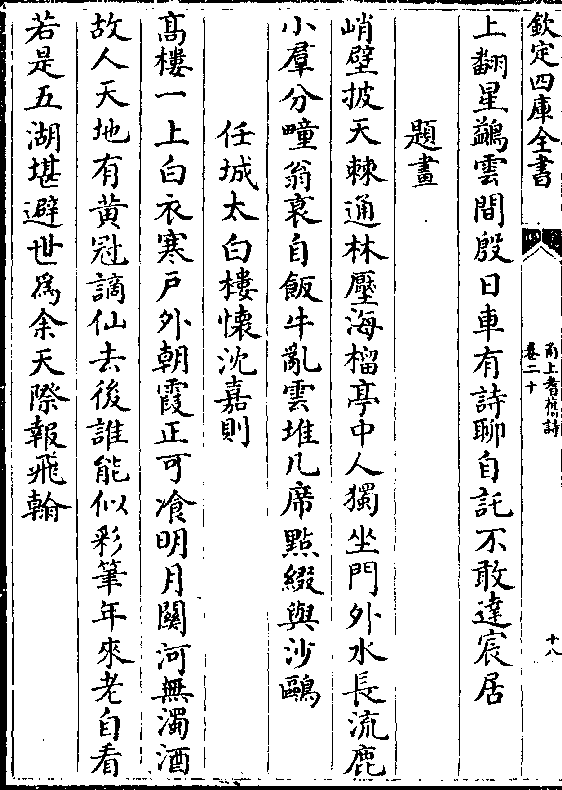 欽定四庫全書
甬上耆舊詩
卷二十
十八
上翻星鷁雲間殷日車有詩聊自託不敢達宸居
題畫
峭壁披天棘通林壓海榴亭中人獨坐門外水長流鹿
小羣分疃翁衰自飯牛亂雲堆几席點綴與沙鷗
任城太白樓懷沈嘉則
髙樓一上白衣寒戶外朝霞正可飡明月關河無濁酒
故人天地有黄冠謫仙去後誰能似彩筆年來老自看
若是五湖堪避世為余天際報飛翰